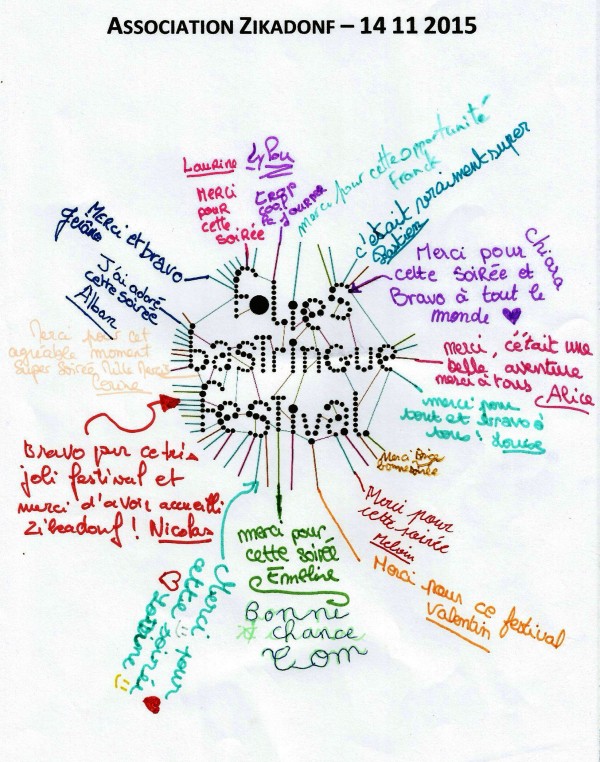 ASSOCIATION ZIKADONF – 14 11 2015
Laurine
MERCI
POUR
cette
SOIRÉE
Lylou
TROP
cool
merci pour cette opportunité
Franck
c'était vraiment super
Bastien
Merci et bravo
Jérôme
J'ai adoré
cette soirée
Alban
Merci pour
cette soirée et
Bravo à tout le
monde
Chiara
Folies
bastringue
festival
Merci pour cet
agréable moment
Super soirée Mille Mercis
Cerise
merci, c'était une
belle aventure
merci à tous
Alice
merci pour
tout et bravo à
tous !
Louise
Merci
bonne soirée
Bravo pour ce très
joli festival et
merci d'avoir accueilli
Zikadonf ! Nicolas
merci pour
cette soirée
Emeline
Merci pour
cette soirée
Melvin
Merci pour ce festival
Valentin
Merci pour
cette soirée
Bonne
chance
Tom